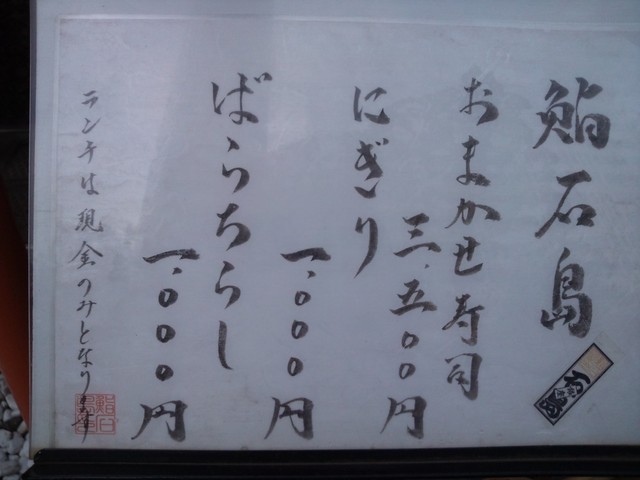 鮨石島
おまかせ寿司
三、五〇〇円
にぎり
一、〇〇〇円
ばらちらし
一、〇〇〇円
ランチは現金のみとなります